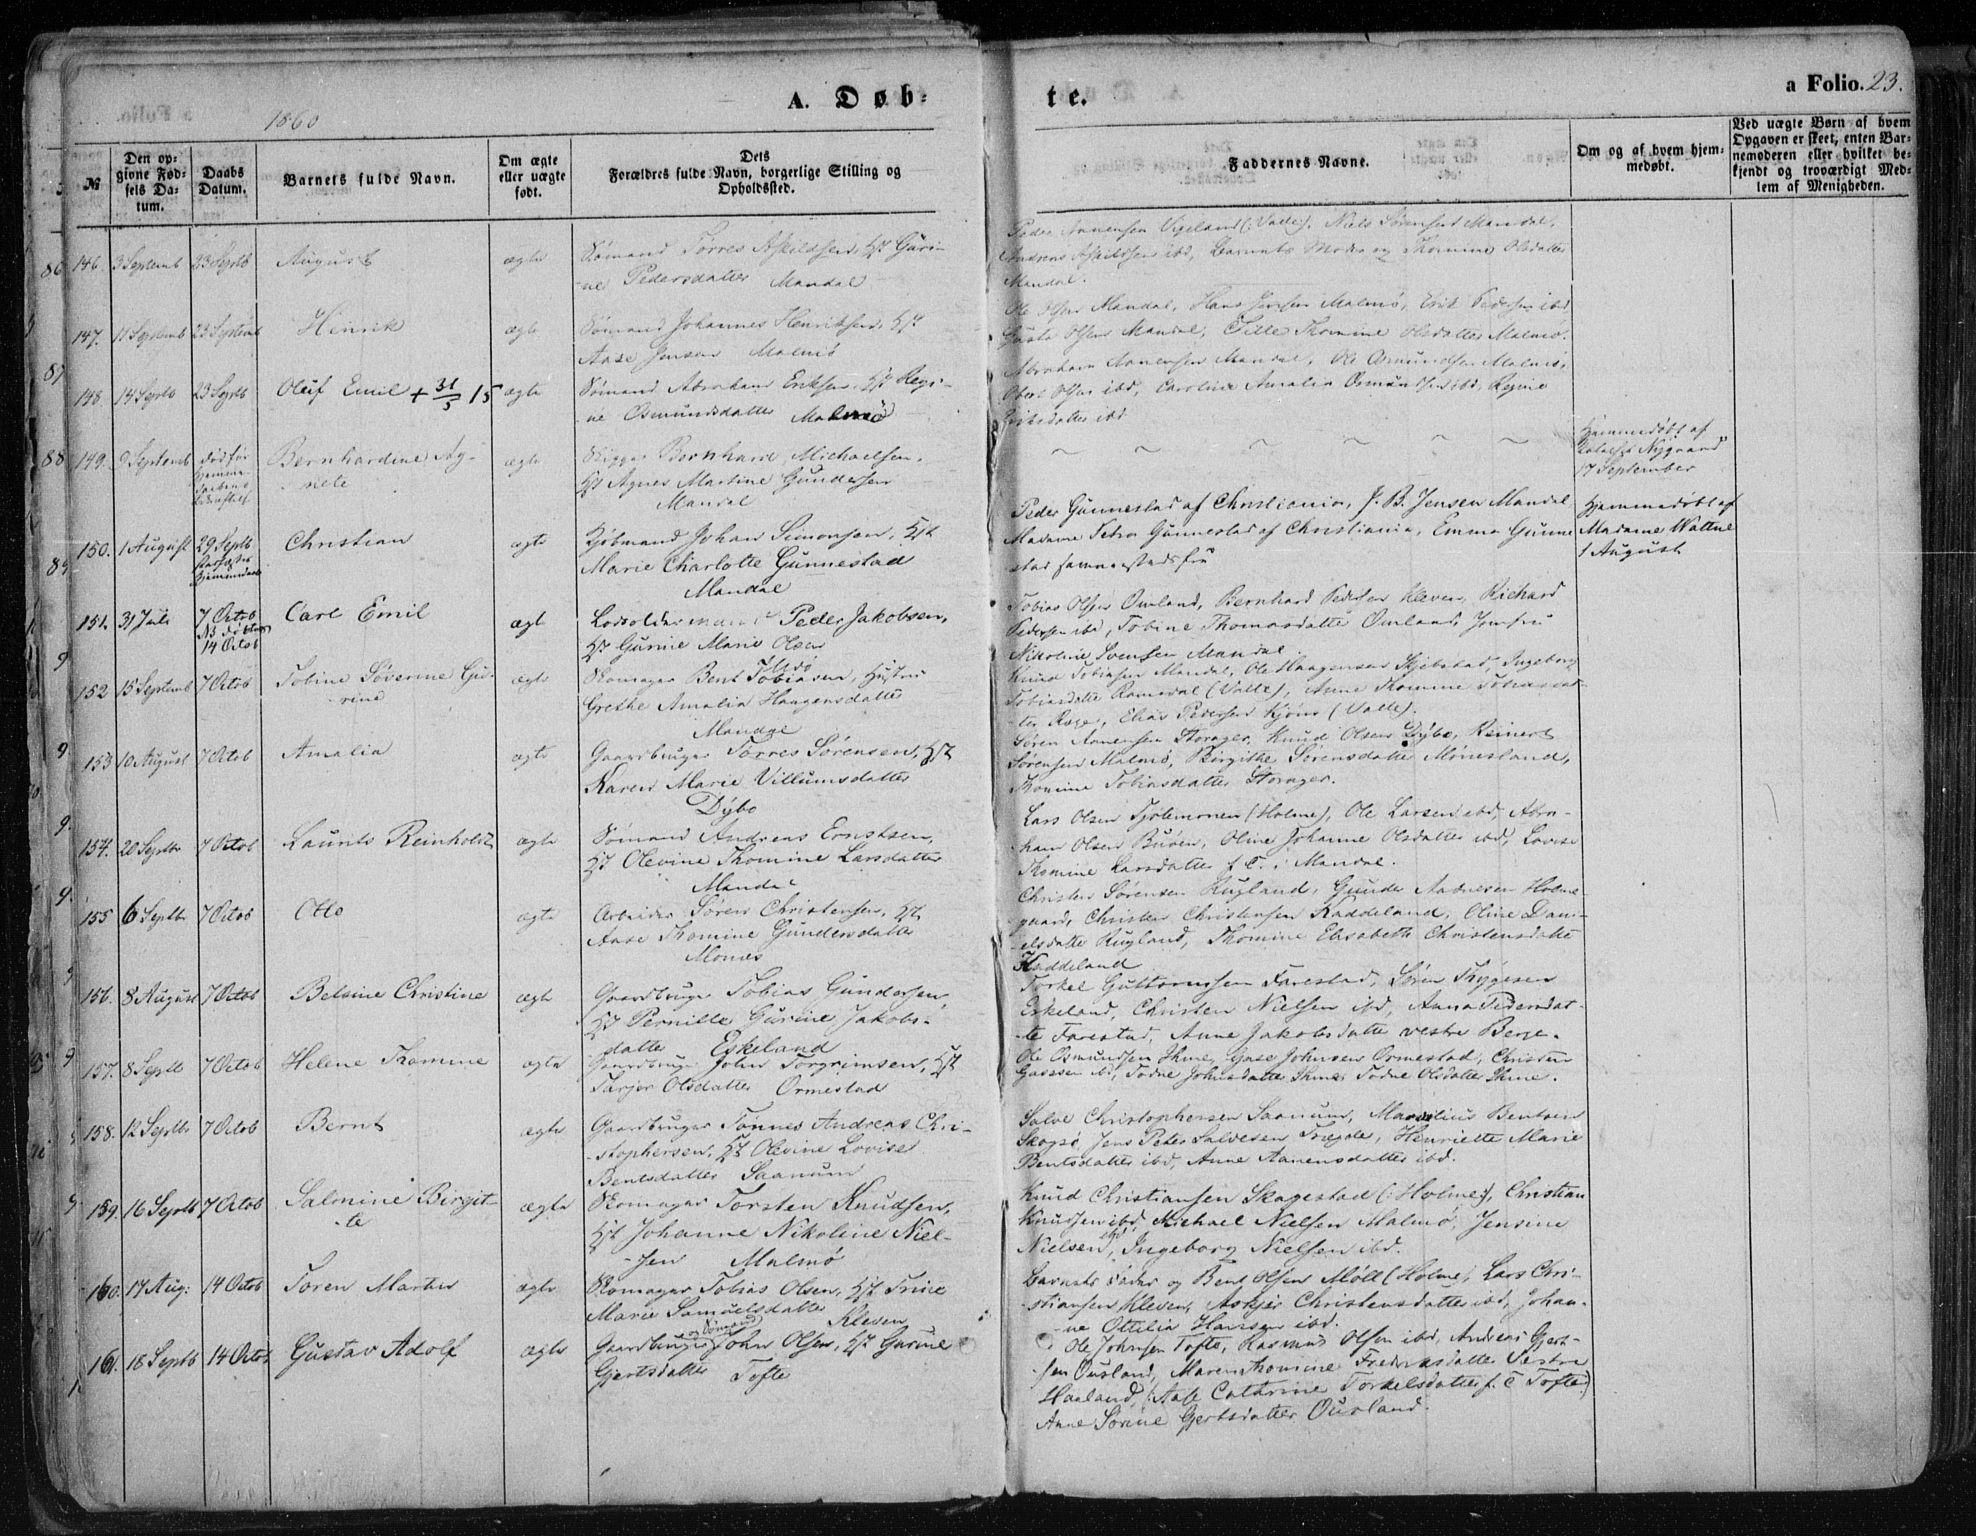 A. Døb-
te.
a Folio. 23.
1860
№
Den opgivne Fødsels Datum.
Daabs Datum.
Barnets fulde Navn.
Om ægte eller uægte født.
Dets Forældres fulde Navn, borgerlige Stilling og Opholdsted.
Faddernes Navne.
Om og af hvem hjemmedøbt.
Ved uægte Børn af hvem Opgaven er skeet, enten Barnemoderen eller hvilket bekjendt og troværdigt Medlem af Menigheden.
146. 3 Septemb 23 Septb August ægte Sømand Tørres Askildsen, Hst Guri-
-ne Pedersdatter Mandal
Peder Aanensen Vigeland (: Valle), Niels Sørensen Mandal,
Andreas Askildsen ibd, Barnets Moder og Thomine Olsdatter
Mandal.
147. 11 Septemb 23 Septemb Henrik ægte Sømand Johannes Henriksen, Hst
Aase Jensen Malmø
Ole Olsen Mandal, Hans Jensen Malmø, Erik Pedersen ibd,
Olsen Mandal, Thomine Olsdatter Malmø.
148 14 Septb 23 Septb Oluf Emil + 31/5 15 ægte Sømand Abraham Eriksen, Hst Regi-
-ne Osmundsdatter Malmø
Abraham Aanensen Mandal, Ole Osmundsen Malmø,
Olsen ibd, Caroline Amalia Osmundsen ibd, Regine
ibd
149. 9 Septemb død før Bernhardine Ag-
-nete ægte Rigger Bernhard Michaelsen,
Hst Agnes Martine Gundersen
Mandal
Hjemmedøbt af
Nygaard
17 September
150. 1 August 29 Septb Christian ægte Kjøbmand Johan Simonsen, Hst
Marie Charlotte Gunnestad
Mandal
Peder Gunnestad af Christiania, J. B. Jensen Mandal
Madame Petra Gunnestad af Christiania, Emma Gunne
stad
Hjemmedøbt af
Madame Wattne
1 August
151. 31 Juli 7 Octob
14 Octob Carl Emil ægte Lodsoldermand Peder Jakobsen,
Hst Gurine Marie Olsen
Tobias Olsen Ouland, Bernhard Pedersen Kleven, Richard
Pedersen ibd, Tobine Thomasdatter Ouland, Jomfru
Nikoline Svensen Mandal.
152 15 Septemb 7 Octob Tobine Severine Gu-
-rine ægte Skomager Bent Tobiasen, Hustru
Grethe Amalia Haagensdatter
Mandal
Knud Tobiasen Mandal, Ole Haagensen Skjebstad, Ingeborg
Tobiasdatter Ramsdal (Valle), Anne Thomine Tobiasdat-
ter Røge, Elias Pedersen Kjøns (Valle).
153 10 August 7 Octob Amalia ægte Gaardbruger Tørres Sørensen, Hst
Karen Marie Villumsdatter
Dybo
Søren Aanensen Storager, Knud Olsen Dybo, Reinert
Sørensen Malmø, Birgithe Sørensdatter Mønesland,
Thomine Tobiasdatter Storager.
154. 20 Septb 7 Octob Laurits Reinholdt ægte Sømand Andreas Ernstsen,
Hst Olevine Thomine Larsdatter
Mandal
Lars Olsen Tjølemonen (Holme), Ole Larsen ibd, Abra-
ham Olsen Buøen, Oline Johanne Olsdatter ibd, Lovise
Thomine Larsdatter f. T. i Mandal.
155 6 Septb 7 Octob Otto ægte Arbeider Søren Christensen, Hst
Aase Thomine Gundersdatter
Mones
Christen Sørensen Rugland, Gunder Aadnesen Holme-
gaard, Christen Christensen Haddeland, Oline Dani-
elsdatter Rugland, Thomine Elisabeth Christensdatter
Haddeland
156. 8 August 7 Octob Belsine Christine ægte Gaardbruger Tobias Gundersen
Hst Pernille Gurine Jakobs-
datter Eskeland
Torkel Guttormsen Farestad, Søren Thygesen
Eskeland, Christen Nielsen ibd, Anna Pedersdat-
-ter Farestad, Anne Jakobsdatter vestre Berge.
157. 8 Septb 7 Octob Helene Thomine ægte Gaardbruger John Torgrimsen, Hst
Tarjer Olsdatter Ormestad
Ole Osmundsen Ihme, Gase Johnsen Ormestad, Christen
Gasesen ibd, Todne Johnsdatter Ihme, Todne Olsdatter Ihme.
158. 12 Septb 7 Octob Bernt ægte Gaardbruger Tønnes Andreas Chri-
-stophersen, Hst Olevine Lovise
Bentsdatter Saanum
Salve Christophersen Saanum, Bentsen
Skogsø, Jens Peter Salvesen Tregde, Henriette Marie
Bentsdatter ibd, Anne Aanensdatter ibd.
159. 16 Septb 7 Octob Salmine Birgit-
-te ægte Skomager Torsten Knudsen,
Hst Johanne Nikoline Niel-
-sen Malmø
Knud Christiansen Skagestad (: Holme:), Christian
Knudsen ibd, Michael Nielsen Malmø, Jensine
Nielsen ibd, Ingeborg Nielsen ibd.
160. 17 Aug: 14 Octob Søren Martin ægte Skomager Tobias Olsen, Hst Trine
Marie Samuelsdatter Kleven
Barnets Fader og Bent Olsen Møll (Holme), Lars Chri-
-stiansen Kleven, Askjer Christensdatter ibd, Johan-
ne Ottilia Hansen ibd.
161. 18 Septb 14 Octob Gustav Adolf ægte Gaardbruger og Sømand John Olsen, Hst Gurine
Gjertsdatter Tofte
Ole Johnsen Tofte, Rasmus Olsen ibd, Andreas Gjert-
sen Ousland, Maren Thomine Fredriksdatter Vestre
Haaland, (: Aase Cathrine Torkelsdatter f. T Tofte:)
Anne Sørine Gjertsdatter Ousland.